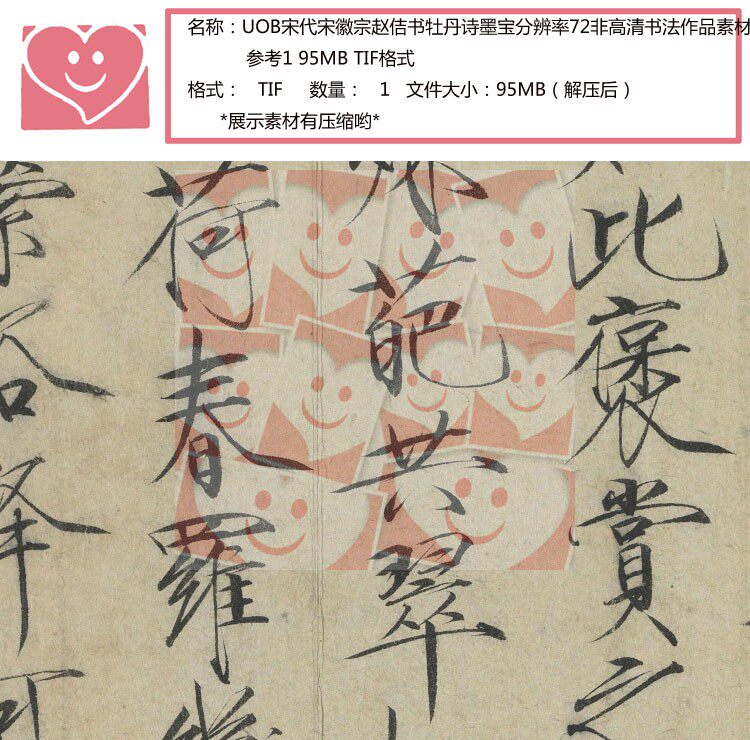 名称：UOB宋代宋徽宗赵佶书牡丹诗墨宝分辨率72非高清书法作品素材
参考1 95MB TIF格式
格式： TIF 数量： 1 文件大小：95MB（解压后）
*展示素材有压缩哟*
此褒賞之
殊葩共翠
荷春羅幾